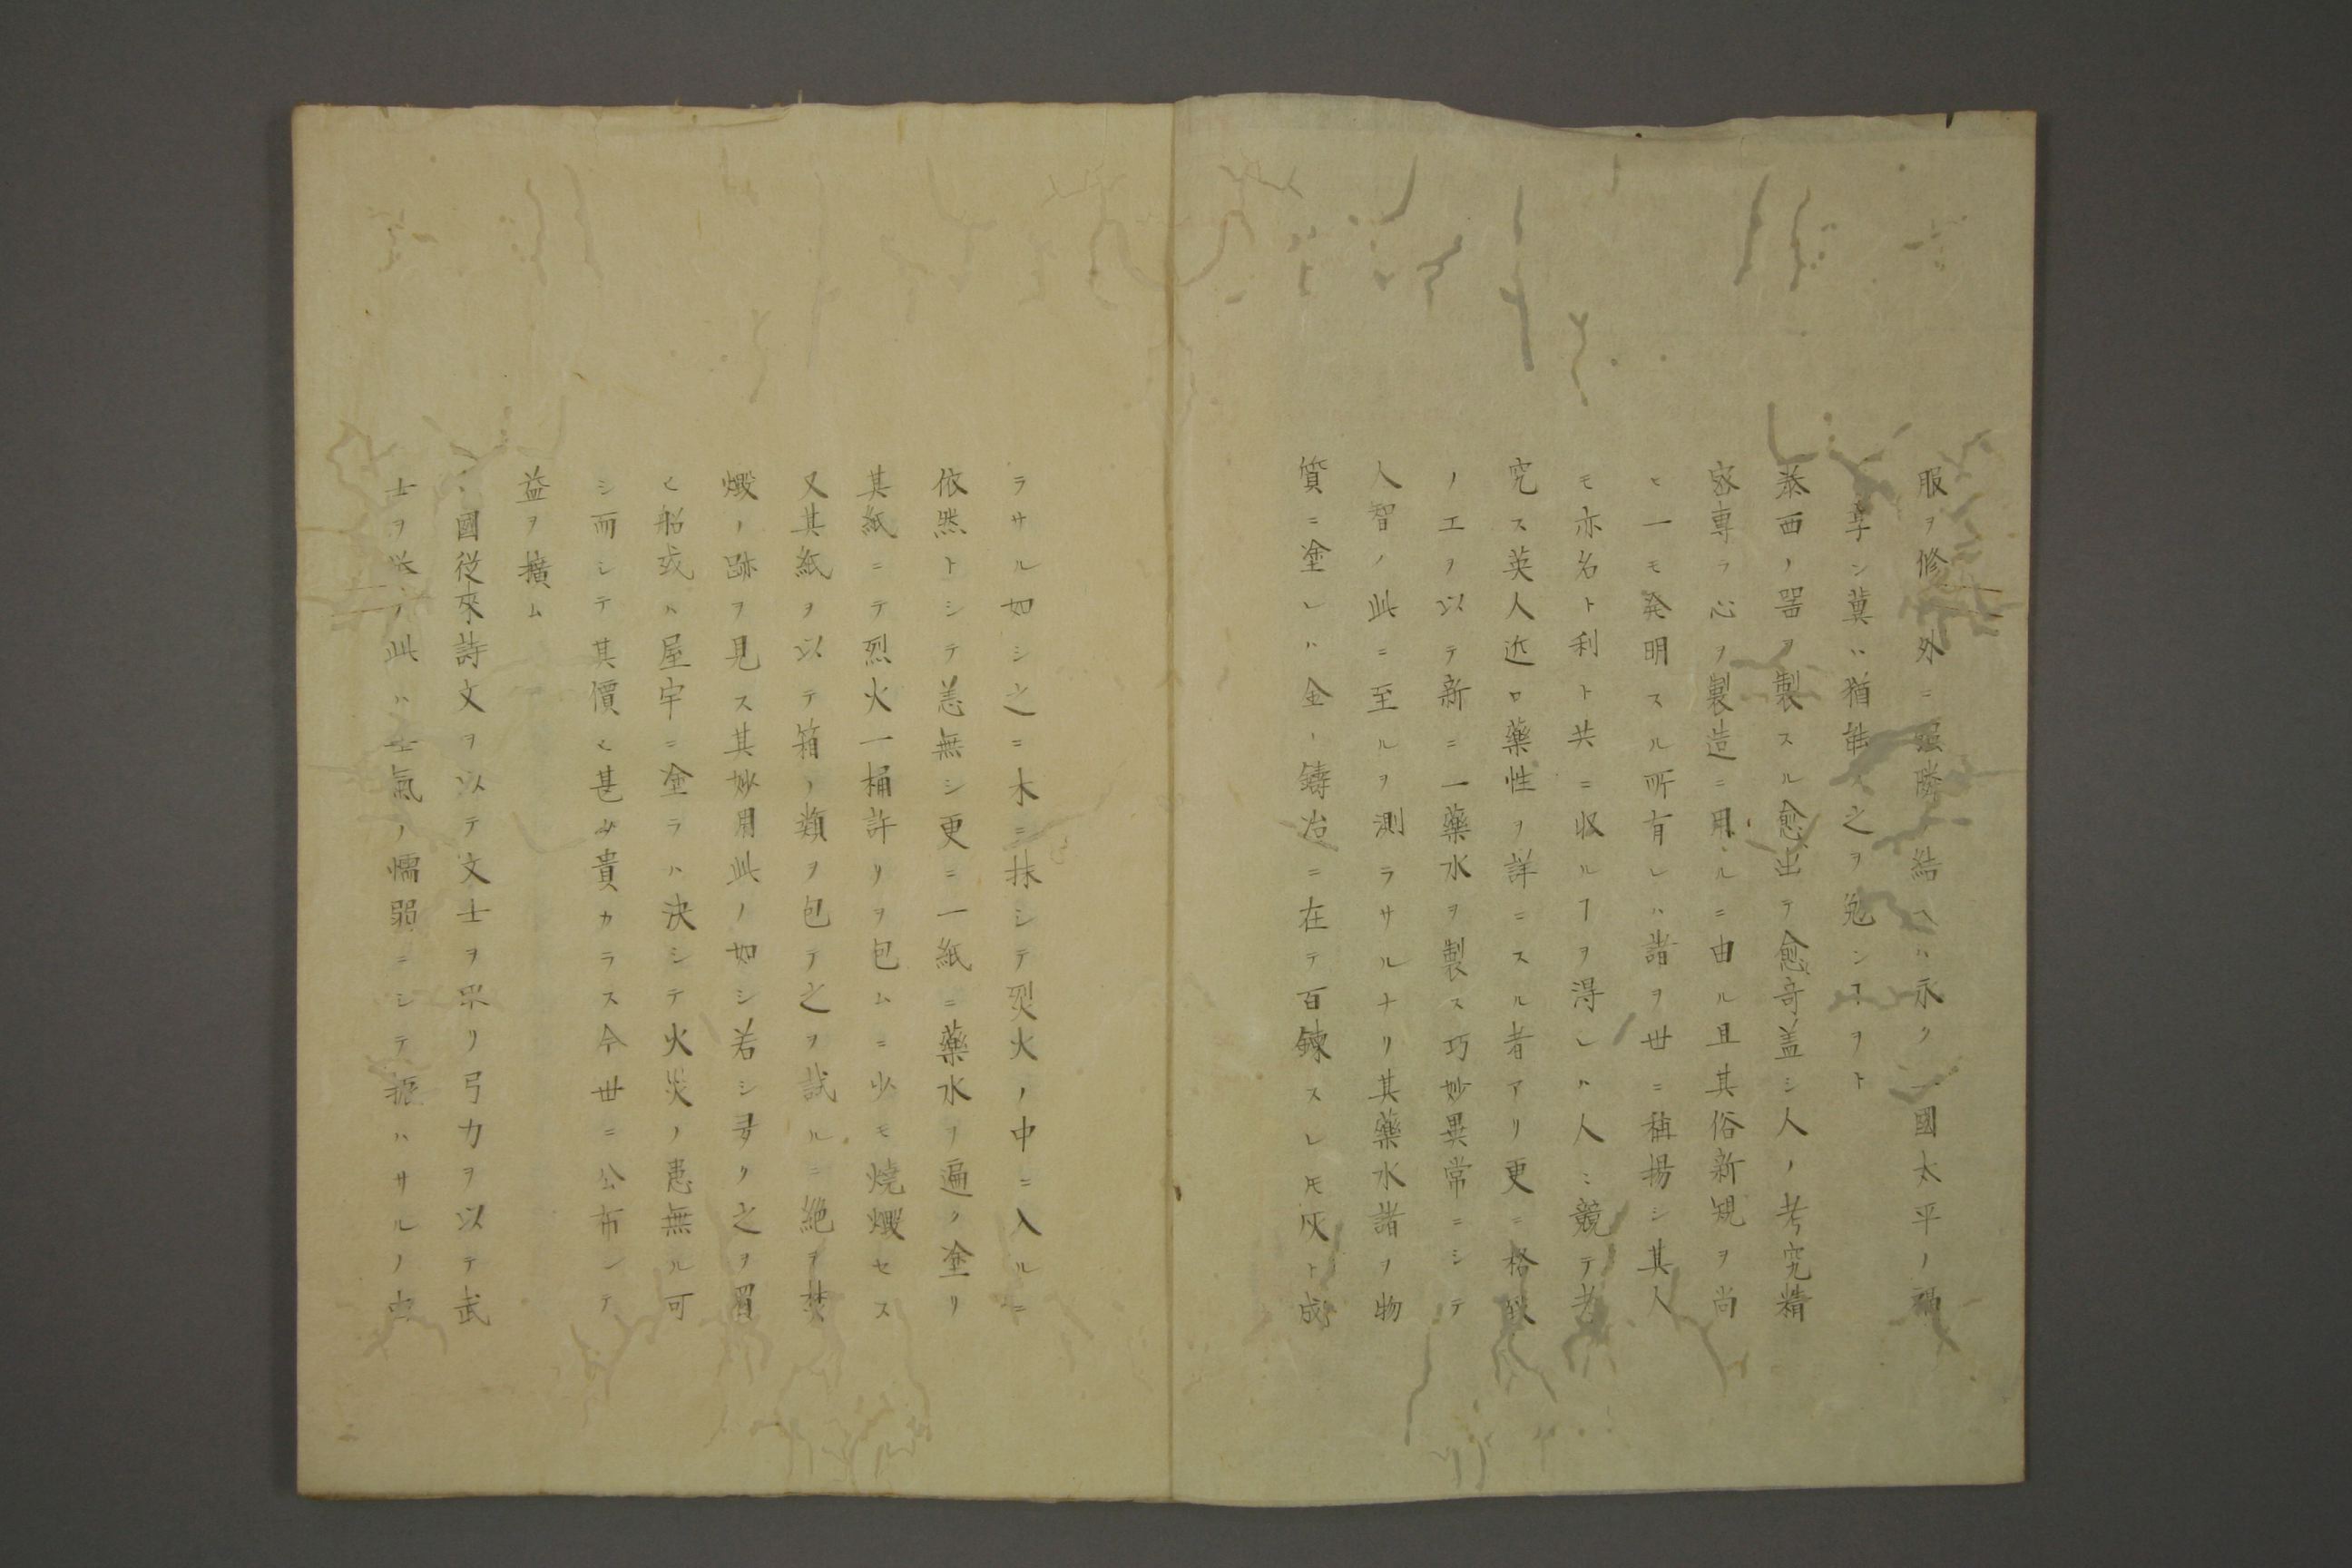 服ヲ修外ニ強隣結ヘハ永ク一國太平ノ福
ヲ享ン冀ハ猶能々之ヲ勉ンヿヲト
泰西ノ噐ヲ製スル愈出テ愈竒盖シ人ノ考究精
密専ラ心ヲ製造ニ用ルニ由ル且其俗新規ヲ尚
ヒ一モ発明スル所有レハ諸ヲ丗ニ稱揚シ其人
モ亦名ト利ト共ニ収ルヿヲ得レハ人ミ競テ考
究ス英人近ロ藥性ヲ詳ニスル者アリ更ニ格致
ノエヲ以テ新ニ一藥水ヲ製ス巧妙異常ニシテ
人智ノ此ニ至ルヲ測ラサルナリ其藥水諸ヲ物
質ニ塗レハ金ヽ鑄冶ニ在テ百鍊スレ𪜈灰ト成
ラサル如シ之ニ木ニ抹シテ烈火ノ中ニ入ルニ
依然トシテ恙無シ更ニ一紙ニ藥水ヲ遍ク塗リ
其紙ニテ烈火一桶許リヲ包ムニ少モ燒燬セス
又其紙ヲ以テ箱ノ類ヲ包テ之ヲ試ルニ絶ヲ焚
燬ノ跡ヲ見ス其妙用此ノ如シ若シ夛ク之ヲ買
ヒ船或ハ屋宇ニ塗ラハ決シテ火災ノ患無ル可
シ而シテ其價ヒ甚タ貴カラス今丗ニ公布シテ
益ヲ擴ム
ミ國従來詩文ヲ以テ文士ヲ采リ弓力ヲ以テ武
士ヲ采ル此ハ士氣ノ懦弱ニシテ振ハサルノ由